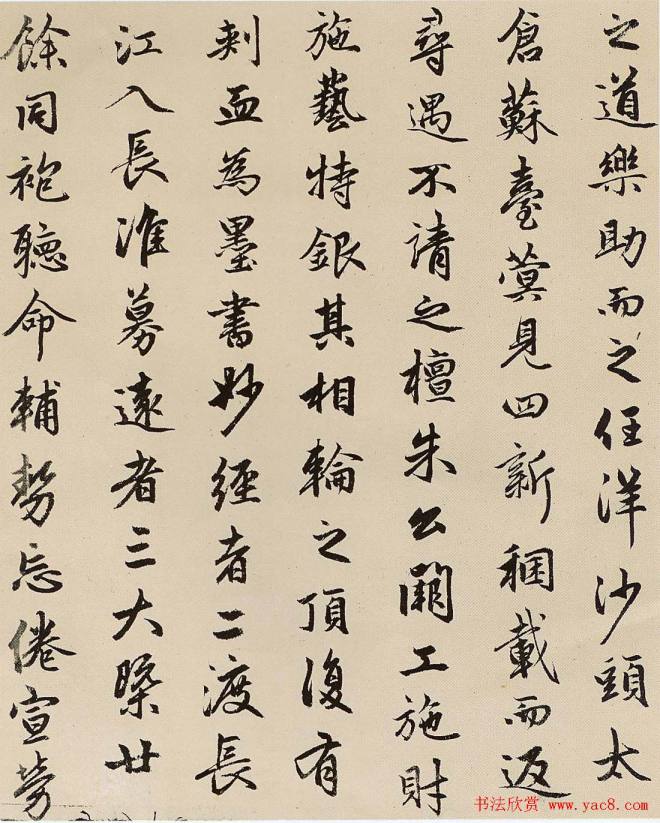 之道樂助而之任洋沙頭太
倉蘇臺蓂見四新稇載而返
尋遇不請之檀朱公開工施財
施藝特銀其相輪之頂復有
刺血為墨書妙經者二渡長
江入長淮募遠者三大槩廿
餘同袍聽命輔勢忘倦宣勞
书法欣赏 www.yac8.com